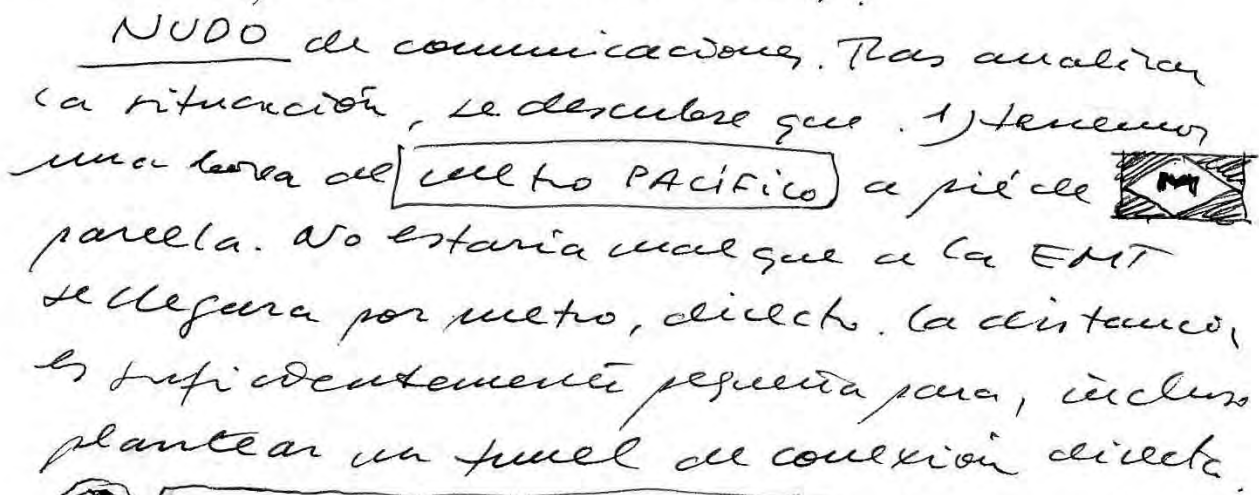 NUDO de comunicaciones. Tras analizar
la situación, se descubre que. 1) tenemos
una boca del metro PACÍFICO a pié de M
parcela. No estaría mal que a la EMT
se llegara por metro, directo. La distancia,
es suficientemente pequeña para, incluso
plantear un tunel de conexión directa.